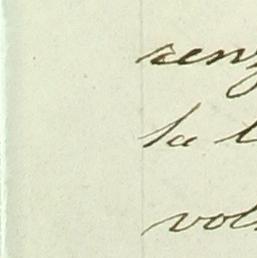 senz
la l
vol